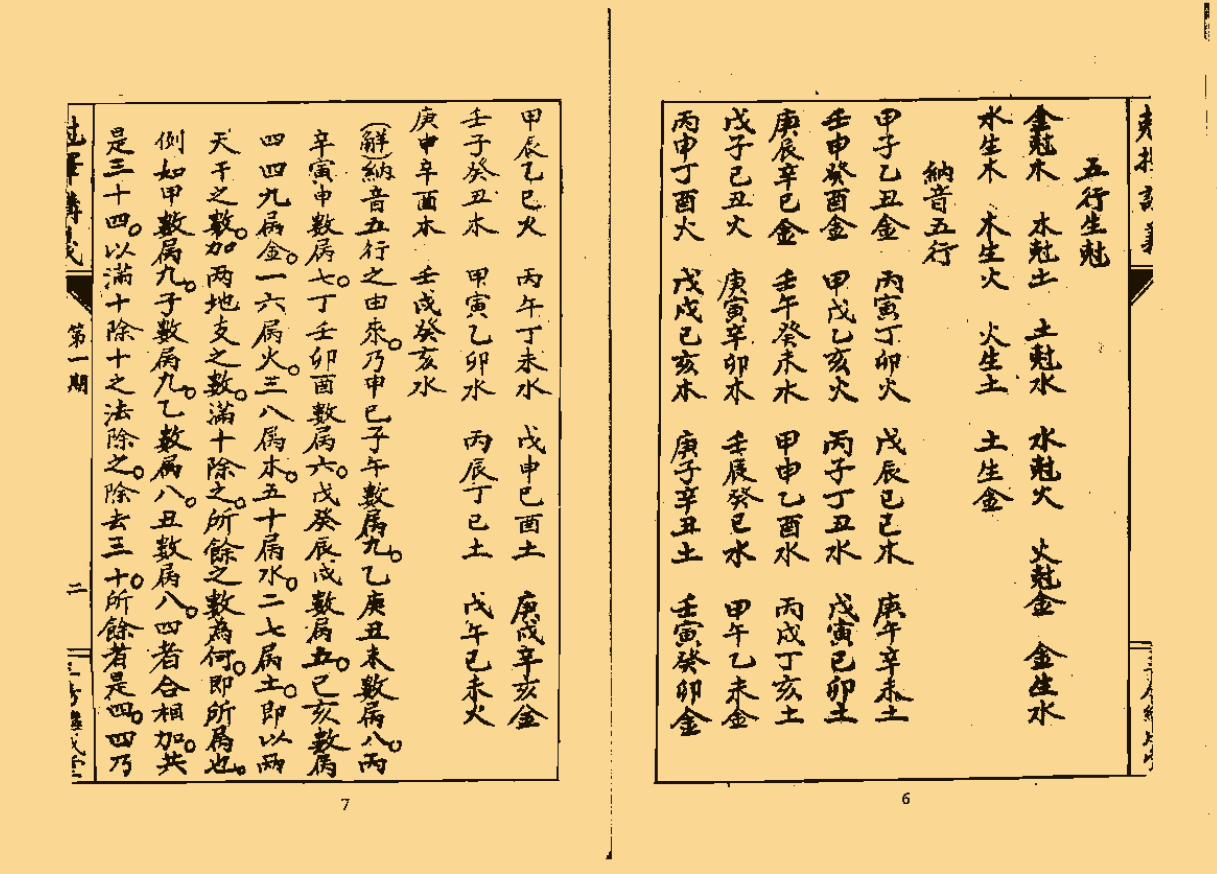 五行生尅
金尅木　水尅土　土尅水　水尅火　火尅金　金生水
水生木　木生火　火生土　土生金
納音五行
甲子乙丑金　丙寅丁卯火　戊辰己巳木　庚午辛未土
壬申癸酉金　甲戌乙亥火　丙子丁丑水　戊寅己卯土
庚辰辛巳金　壬午癸未木　甲申乙酉水　丙戌丁亥土
戊子己丑火　庚寅辛卯木　壬辰癸巳水　甲午乙未金
丙申丁酉火　戊戌己亥木　庚子辛丑土　壬寅癸卯金
6
甲辰乙巳火　丙午丁未水　戊申己酉土　庚戌辛亥金
壬子癸丑木　甲寅乙卯水　丙辰丁巳土　戊午己未火
庚申辛酉木　壬戌癸亥水
(解)納音五行之由來。乃甲己子午數屬九。乙庚丑未數屬八。丙
辛寅申數屬七。丁壬卯酉數屬六。戊癸辰戌數屬五。巳亥數屬
四四九屬金。一六屬火。三八屬木。五十屬水。二七屬土。即以兩
天干之數。加两地支之數。滿十除之。所餘之數為何。即所屬也。
例如甲數屬九。子數屬九。乙數屬八。丑數屬八。四者合相加。共
是三十四。以滿十除十之法除之。除去三十。所餘者是四。四乃
第一期
二
7